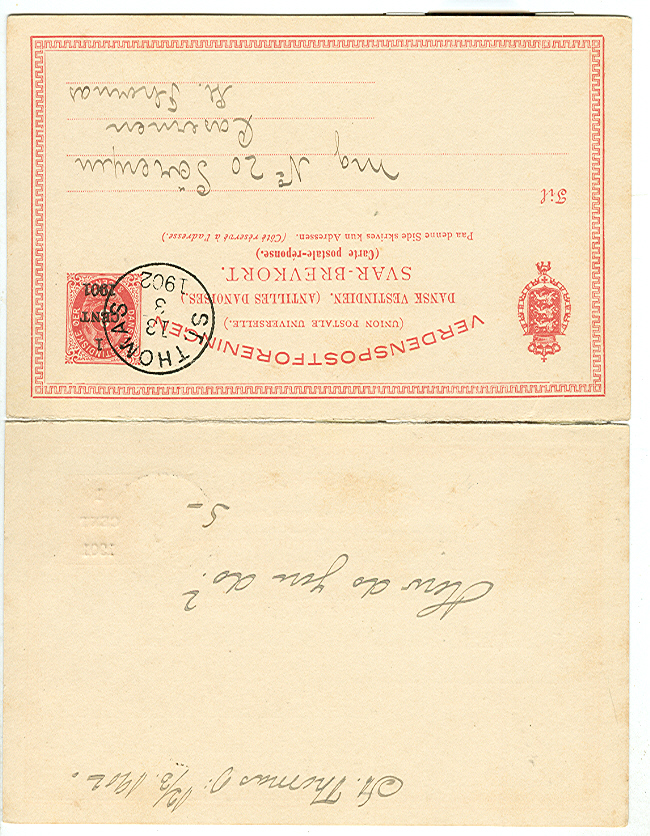 St. Thomas d: 12/3. 1902.
How do you do?
S-
VERDENSPOSTFORENINGEN
(UNION POSTALE UNIVERSELLE.)
DANSK VESTINDIEN. (ANTILLES DANOISES.)
SVAR-BREVKORT.
(Carte postale-réponse.)
Paa denne Side skrives kun Adressen. (Côté réservé à l'adresse.)
1
CENT
1901
ST. THOMAS
13
3
1902
Til
No 20
St. Thomas